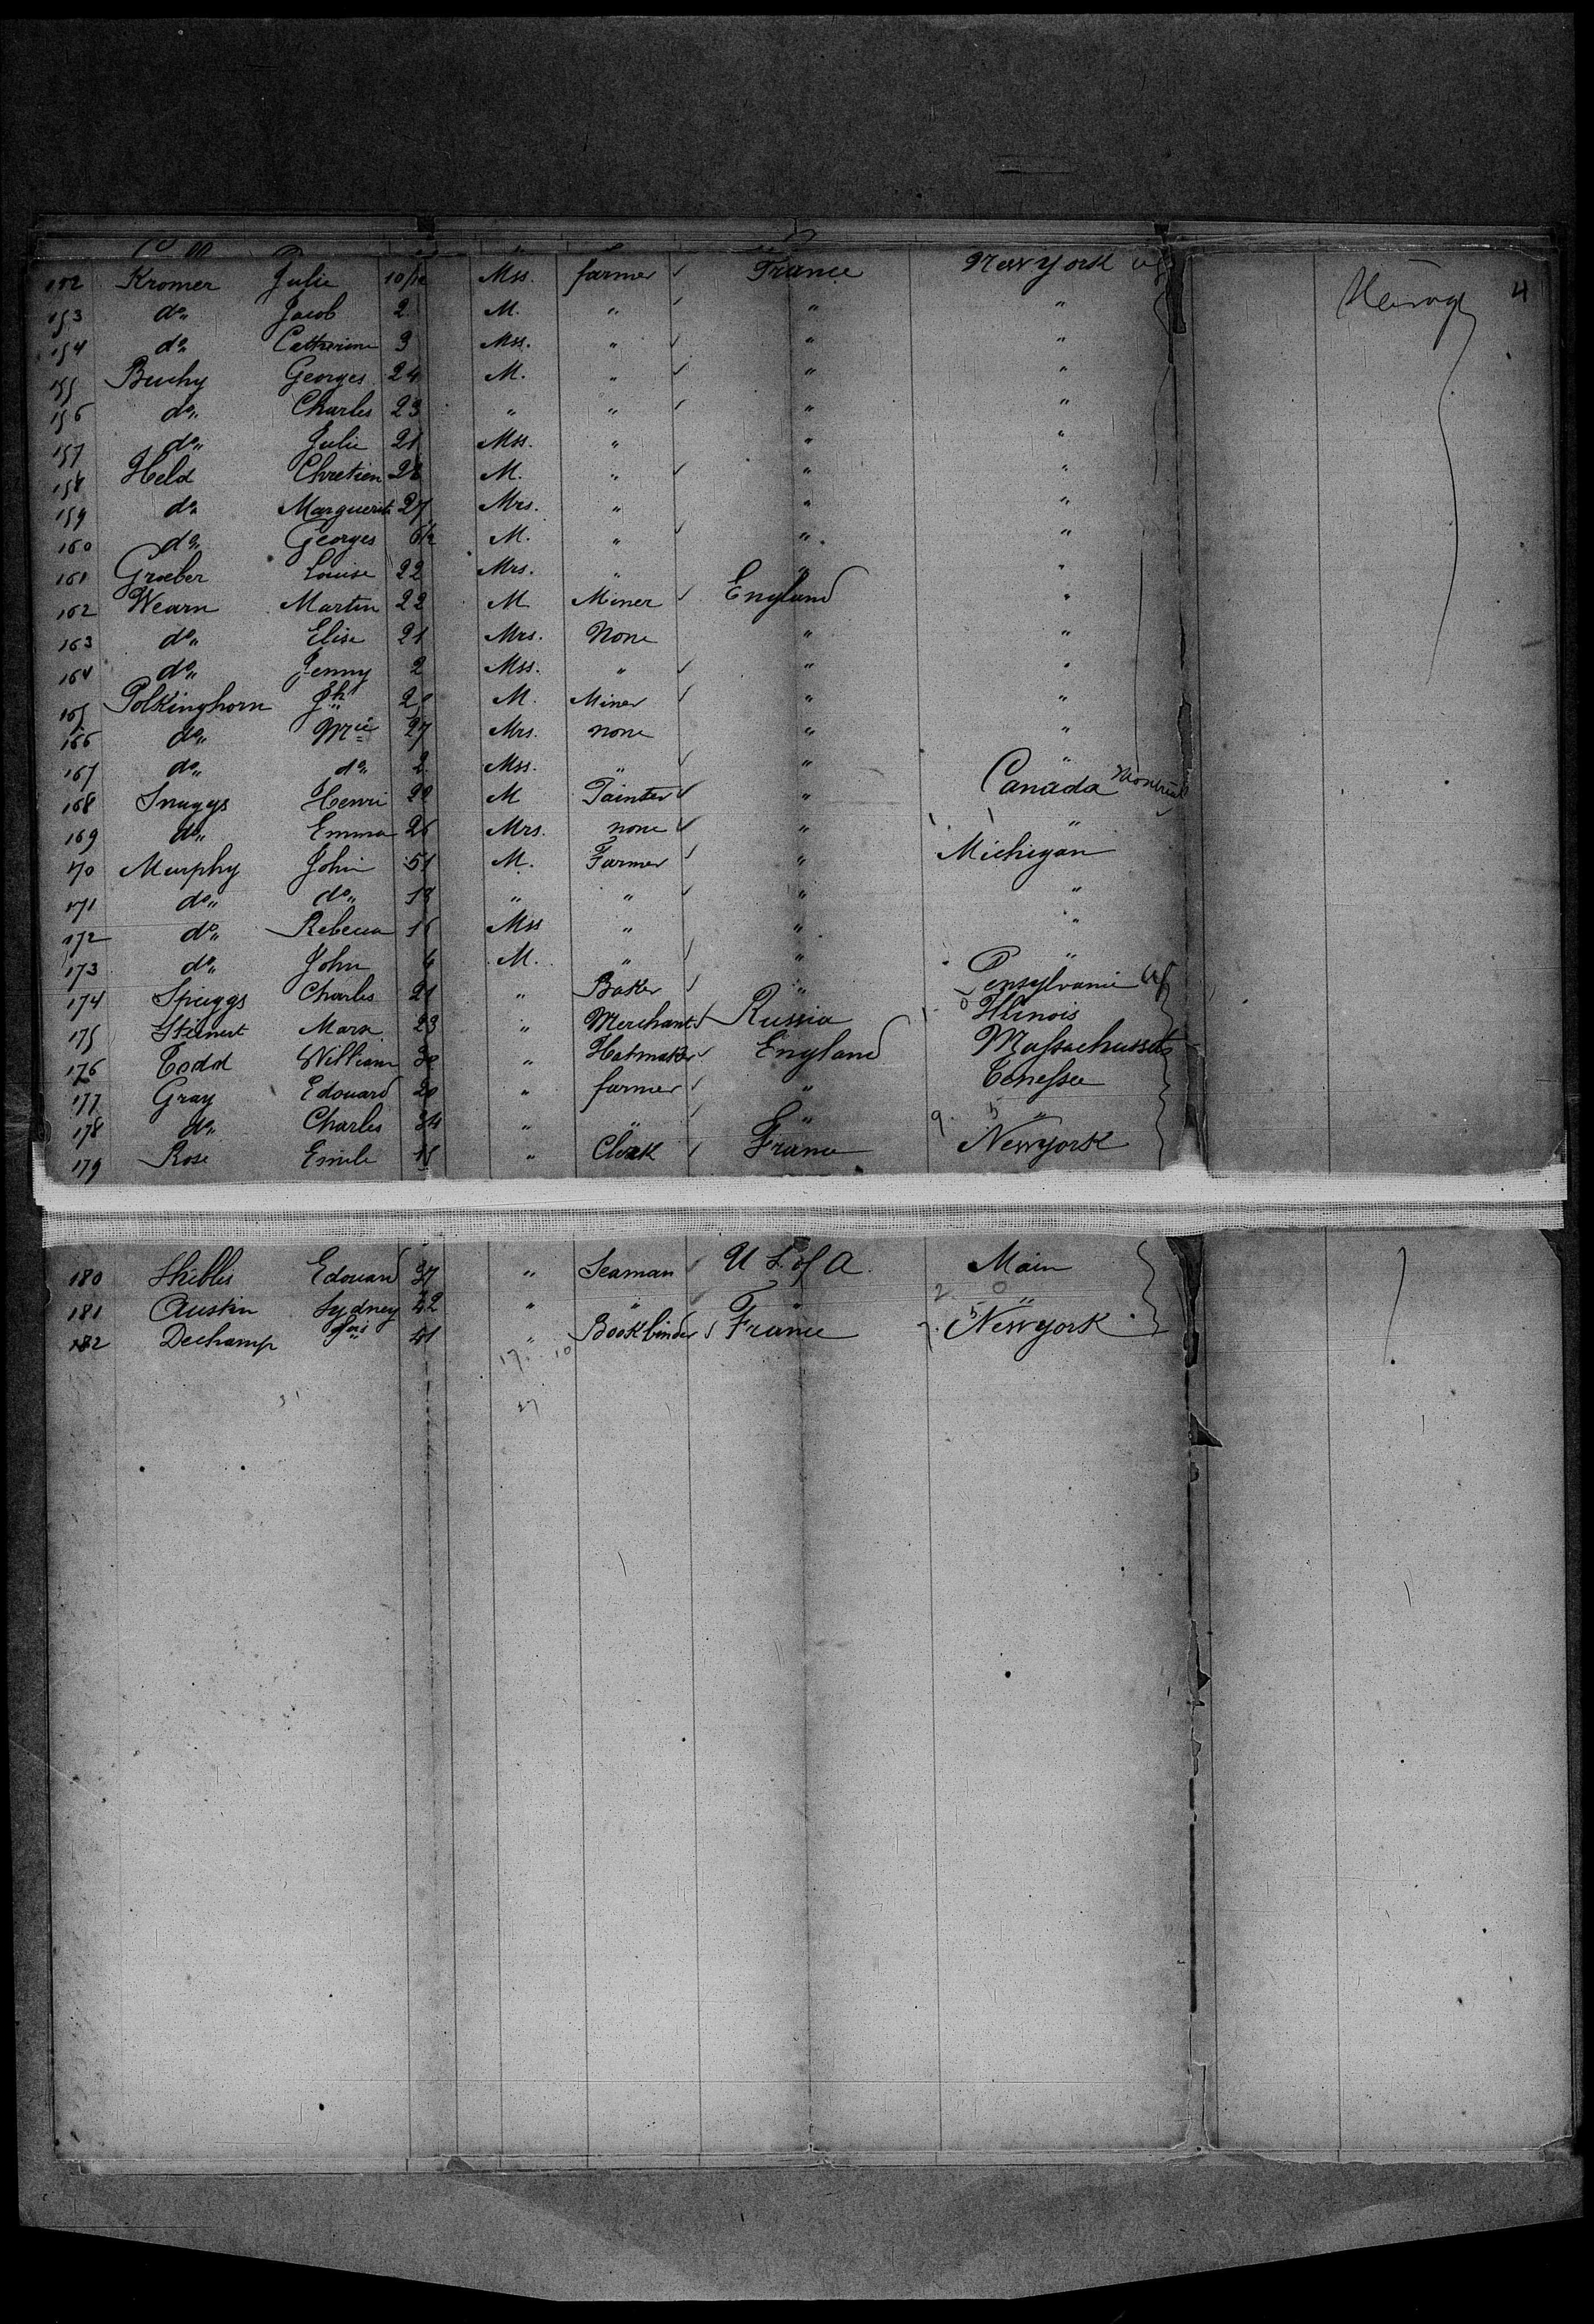 152 Kromer Julie 10/12 Mss. farmer ✓ France New york
Herzog 4
153 do,, Jacob 2 M. " ✓ " "
154 do,, Catherine 3 Mss. " ✓ " "
155 Buchy Georges 24 M. " ✓ " "
156 do,, Charles 23 " " ✓ " "
157 do,, Julie 21 Mss. " " "
158 Held Chretien 28 M. " ✓ " "
159 do,, Marguerite 27 Mrs. " " "
160 do,, Georges 6/12 M. " ✓ " "
161 Groeber Louise 22 Mrs. " " "
162 Wearn Martin 22 M Miner ✓ England "
163 do,, Elise 21 Mrs. None " "
164 do,, Jenny 2 Mss. " ✓ " "
165 Polkinghorn Jh M. Miner ✓ " "
166 do,, Mrie 27 Mrs. none " "
167 do,, do,, 2 Mss. " ✓ " "
168 Snuggs Henri 22 M Painter ✓ " Canada Montreal
169 do,, Emma 26 Mrs. none ✓ " "
170 Murphy John 51 M. Farmer ✓ " Michigan
171 do,, do,, 18 " " ✓ " "
172 do,, Rebecca 16 Mss " " "
173 do,, John M. " ✓ " "
174 Spriggs Charles 21 " Baker ✓ " Pensylvanie
175 Steinert Marx 23 " Merchant ✓ Russia Illinois
176 Todd William " Hatmaker ✓ England Massachussets
177 Gray Edouard 20 " farmer ✓ " Tenessee
178 do,, Charles 34 " " ✓ " "
179 Rose Emile " Clerk ✓ France Newyork
180 Skiblis Edouard 37 " Seaman ✓ U S. of A. Main
181 Austin Sydney 42 " " " "
182 Dechamp 41 " Bookbinder ✓ France Newyork
17. 10
27